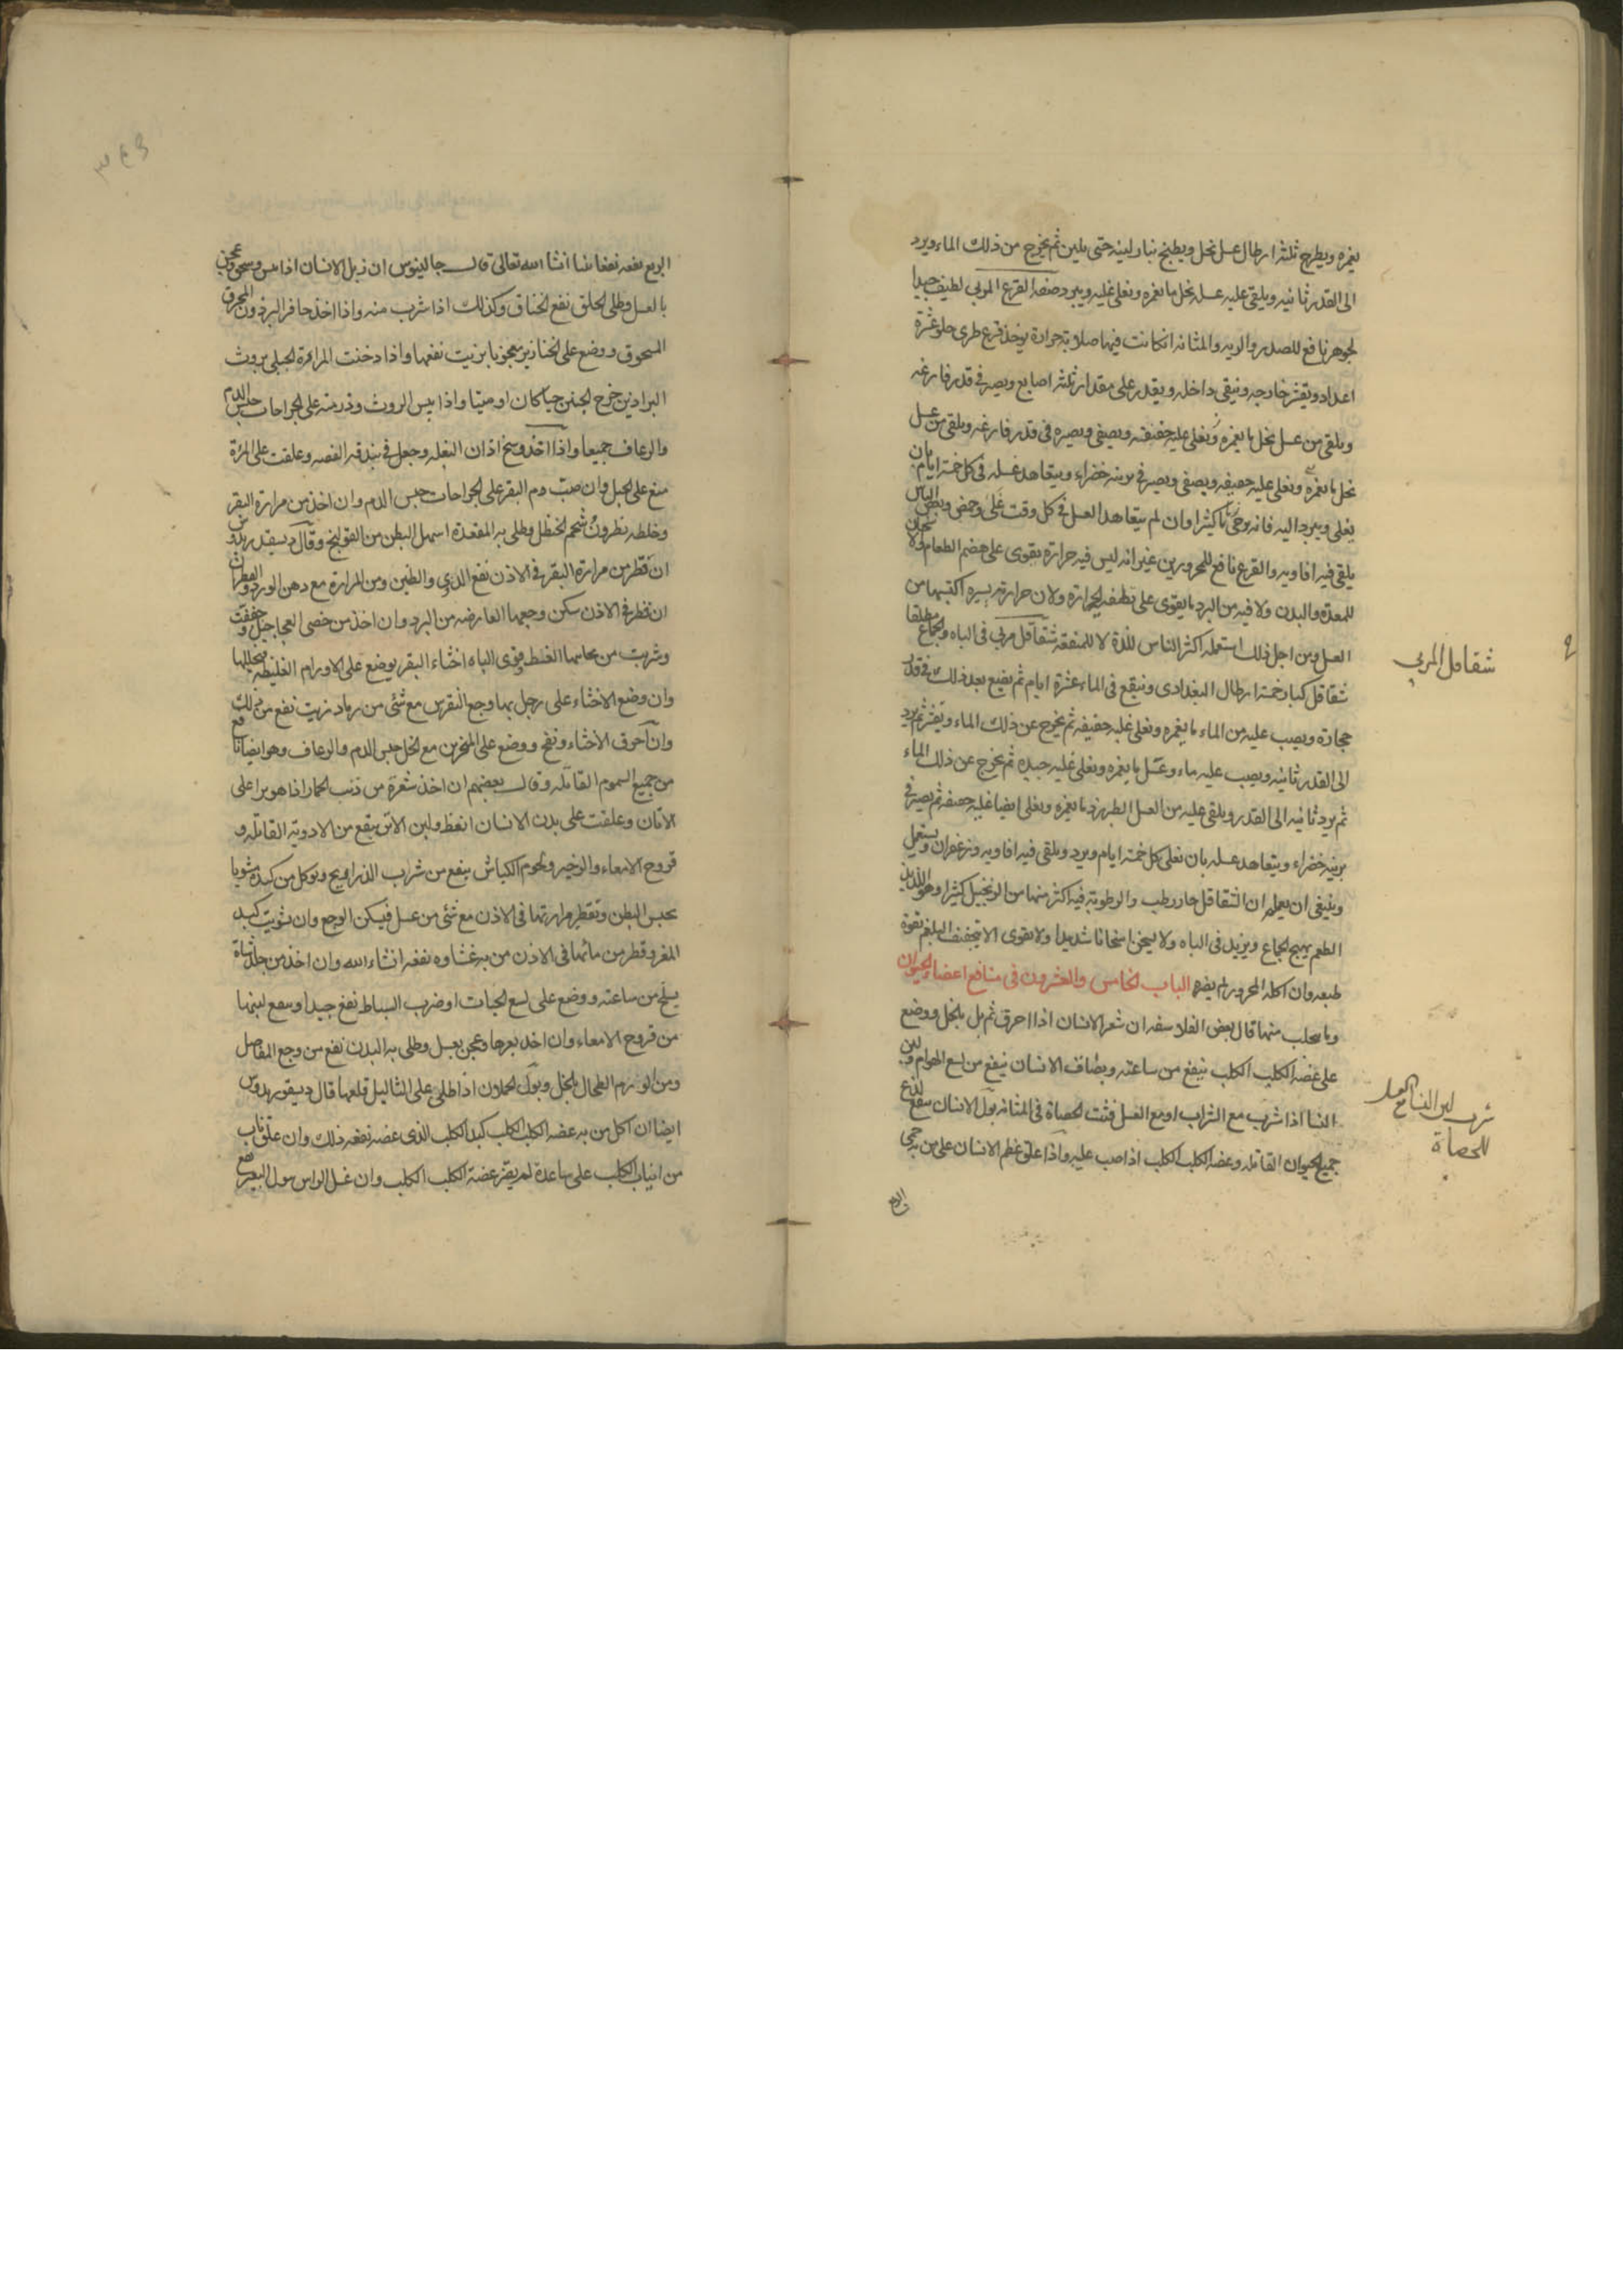 يغمره ويطرح ثلثة ارطال عسل نحل ويطبخ بنار لينه حتى يلين ثم يخرج من ذلك الماء ويرد
الى القدر ثانيه ويلقى عليه عسل نحل ما يغمره ويغلى غليه ويبرد صفه القرع المربى لطيف جيدا
لجوهر نافع للصدر والريه والمثانه انكانت فيها صلابة جرادة يوخذ قرع طرى حلو عشرة
اعداد ويقشر خارجه وينقى داخله ويقدر على مقدار ثلثه اصابع ويصير فى قدر فارغه
ويلقى من عسل نحل ما يغمره ويغلى عليه خفيفه ويصفى ويصيره فى قدر فارغه ويلقى من عسل
نحل ما يغمره ويغلى غليه خفيفه ويصفى ويصير فى برنيه خضراء ويتعاهد عسله فى كل خمسة ايام بان
يغلى ويبرد اليه فانه يرخى ماءً كثيرا وان لم يتعاهد العسل فى كل وقت غلى وحمض
يلقى فيه افاويه والقرع نافع للمحرورين غير انه ليس فيه حرارة يقوى على هضم الطعام
للمعدة والبدن ولا فيه من البرد ما يقوى على تطفيه الحرارة ولان حرارة يسيره اكتسبها من
العسل ومن اجل ذلك استعمله اكثر الناس للذة لا للمنفعة شقاقل مربى فى الباه والجماع مطلقا
شقاقل كبار خمسة ارطال البغدادى وينقع فى الماء عشرة ايام ثم يضع بعد ذلك فى قدر
حجارة ويصب عليه من الماء ما يغمره ويغلى غليه خفيفه ثم يخرج عن ذلك الماء ويقشر ثم يرد
الى القدر ثانيه ويصب عليه ماء وعسل ما يغمره ويغلى غليه جيده ثم يخرج عن ذلك الماء
ثم يرد ثانيه الى القدر ويلقى عليه من العسل الطبرزد ما يغمره ويغلى ايضا غليه خفيفه ثم يصير فى
برنيه خضراء ويتعاهد عسله بان يغلى كل خمسة ايام ويرد ويلقى فيه افاويه وزعفران ويستعمل
وينبغى ان يعلم ان الشقاقل حار رطب والرطوبة فيه اكثر منها من الزنجبيل كثيرا وهو لذيذ
الطعم يهيج الجماع ويزيد فى الباه ولا يسخن اسخانا شديدا ولا يقوى الا تجفيف البلغم بقوة
طبعه وان اكله المحرور لم يضره الباب الخامس والعشرون فى منافع اعضاء الحيوان
وما يحلب منها قال بعض الفلاسفه ان شعر الانسان اذا احرق ثم بل بالخل ووضع
على عضة الكلب الكلب ينفع من ساعته وبصاق الانسان ينفع من لسع الهوام ولبن
النسا اذا شرب مع الشراب او مع العسل فتت الحصاة فى المثانه بول الانسان ينفع لذع
جميع الحيوان القاتله وعضه الكلب الكلب اذا صب عليه واذا علق عظم الانسان على من به حمى
الربع
شقاقل المربى
شرب لبن النسا مع العسل
للحصاة
الربع نفعه نفعا بينا انشا الله تعالى قال جالينوس ان زبل الانسان اذا يبس وسحق وعجن
بالعسل وطلى الحلق نفع الخناق وكذلك اذا شرب منه واذا اخذ حافر البرذون المحرق
المسحوق ووضع على الخنازير معجونا بزيت نفعها واذا دخنت المراة الحبلى بروث
البراذين خرج الجنين حيا كان او ميتا واذا يبس الروث وذر منه على الجراحات حبس الدم
والرعاف جميعا واذا اخذ وسخ اذان البغله وجعل فى بندقه الفضه وعلقت على المرئة
منع على الحبل وان صبت دم البقر على الجراحات حبس الدم وان اخذ من مرارة البقر
وخلطه نطرون شحم الحنظل وطلى به المقعدة اسهل البطن من القولنج وقال ديسقدريدوس
ان قطر من مرارة البقر فى الاذن نفع الدوى والطنين ومن المرارة مع دهن الورد
ان قطر فى الاذن سكن وجعها العارضه من البرد وان اخذ من خصى العجاجيل وجففت
وشربت من الباه اخثاء البقر يوضع على الاورام الغليظه فيحللها
وان وضع الاخثاء على رجل بها وجع النقرس مع شئ من رماد زيت نفع من ذلك
وان احرق الاخثاء ونفخ ووضع على المنخرين مع الخل حبس الدم والرعاف وهو ايضا نافع
من جميع السموم القاتله وقال بعضهم ان اخذ شعرة من ذنب الحمار اذا هو برا على
الاتان وعلقت على بدن الانسان انعظ ولبن الاتن ينفع من الادوية القاتله و
قروح الامعاء والزحير ولحوم الكباش ينفع من شراب الذراريح ويوكل من كبده مشويا
يحبس البطن وتقطير مرارتها فى الاذن مع شئ من عسل فيسكن الوجع وان شويت كبد
المعز وقطر من مائها فى الاذن من به غشاوه نفعه انشاء الله وان اخذ من جلد شاة
يسلخ من ساعته ووضع على لسع الحيات او ضرب السياط نفع جيدا وينفع لبنها
من قروح الامعاء وان اخذ بعرها وعجن بعسل وطلى به البدن نفع من وجع المفاصل
ومن الورم الطحال بالخل وبول الحملان اذا طلى على الثاليل قلعها قال ديسقوريدوس
ايضا ان اكل من به عضه الكلب الكلب كبد الكلب الذى عضه نفعه ذلك وان علق ناب
من انياب الكلب على ساعدة لم يضر عضة الكلب الكلب وان غسل الراس ببول البعير نفع